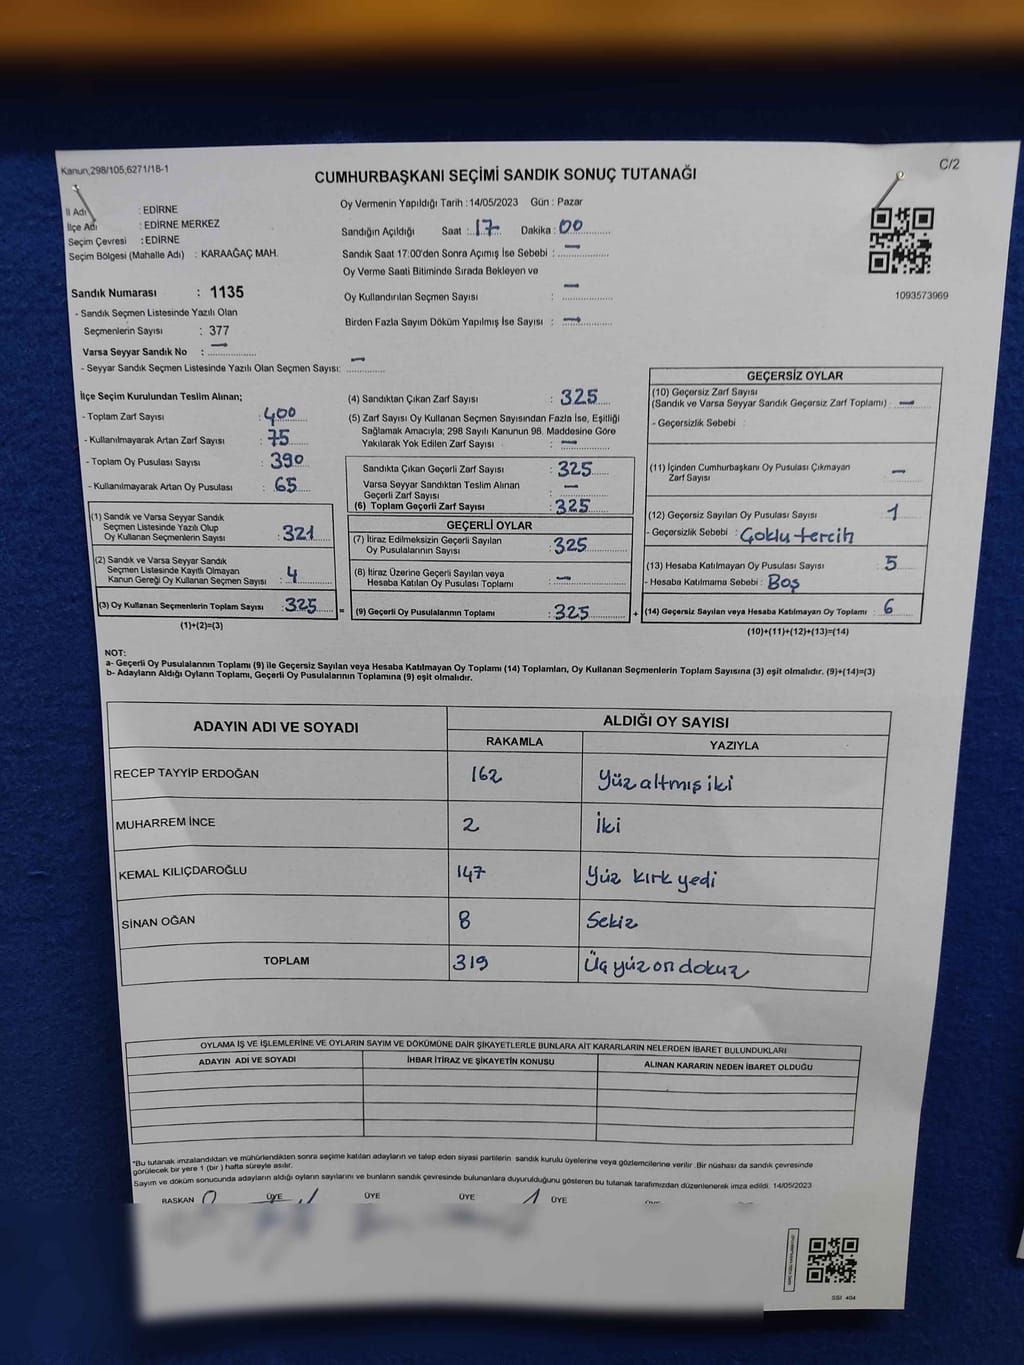 Kanun;298/105,6271/18-1
C/2
CUMHURBAŞKANI SEÇİMİ SANDIK SONUÇ TUTANAĞI
İl Adı : EDİRNE
İlçe Adı : EDİRNE MERKEZ
Seçim Çevresi : EDİRNE
Seçim Bölgesi (Mahalle Adı) : KARAAĞAÇ MAH.
Sandık Numarası : 1135
- Sandık Seçmen Listesinde Yazılı Olan
Seçmenlerin Sayısı : 377
Varsa Seyyar Sandık No : —
- Seyyar Sandık Seçmen Listesinde Yazılı Olan Seçmen Sayısı: —
Oy Vermenin Yapıldığı Tarih :14/05/2023 Gün : Pazar
Sandığın Açıldığı Saat : 17 Dakika : 00
Sandık Saat 17:00'den Sonra Açımış İse Sebebi : —
Oy Verme Saati Bitiminde Sırada Bekleyen ve
Oy Kullandırılan Seçmen Sayısı : —
Birden Fazla Sayım Döküm Yapılmış İse Sayısı : —
1093573969
İlçe Seçim Kurulundan Teslim Alınan;
- Toplam Zarf Sayısı : 400
- Kullanılmayarak Artan Zarf Sayısı : 75
- Toplam Oy Pusulası Sayısı : 390
- Kullanılmayarak Artan Oy Pusulası : 65
(1) Sandık ve Varsa Seyyar Sandık
Seçmen Listesinde Yazılı Olup
Oy Kullanan Seçmenlerin Sayısı : 321
(2) Sandık ve Varsa Seyyar Sandık
Seçmen Listesinde Kayıtlı Olmayan
Kanun Gereği Oy Kullanan Seçmen Sayısı : 4
(3) Oy Kullanan Seçmenlerin Toplam Sayısı : 325 =
(1)+(2)=(3)
(4) Sandıktan Çıkan Zarf Sayısı : 325
(5) Zarf Sayısı Oy Kullanan Seçmen Sayısından Fazla İse, Eşitliği
Sağlamak Amacıyla; 298 Sayılı Kanunun 98. Maddesine Göre
Yakılarak Yok Edilen Zarf Sayısı : —
Sandıkta Çıkan Geçerli Zarf Sayısı : 325
Varsa Seyyar Sandıktan Teslim Alınan
Geçerli Zarf Sayısı : —
(6) Toplam Geçerli Zarf Sayısı : 325
GEÇERLİ OYLAR
(7) İtiraz Edilmeksizin Geçerli Sayılan
Oy Pusulalarının Sayısı : 325
(8) İtiraz Üzerine Geçerli Sayılan veya
Hesaba Katılan Oy Pusulası Toplamı : —
(9) Geçerli Oy Pusulalarının Toplamı : 325 +
GEÇERSİZ OYLAR
(10) Geçersiz Zarf Sayısı
(Sandık ve Varsa Seyyar Sandık Geçersiz Zarf Toplamı) : —
- Geçersizlik Sebebi :
(11) İçinden Cumhurbaşkanı Oy Pusulası Çıkmayan
Zarf Sayısı : —
(12) Geçersiz Sayılan Oy Pusulası Sayısı : 1
- Geçersizlik Sebebi : Çoklu tercih
(13) Hesaba Katılmayan Oy Pusulası Sayısı : 5
- Hesaba Katılmama Sebebi : Boş
(14) Geçersiz Sayılan veya Hesaba Katılmayan Oy Toplamı : 6
(10)+(11)+(12)+(13)=(14)
NOT:
a- Geçerli Oy Pusulalarının Toplamı (9) ile Geçersiz Sayılan veya Hesaba Katılmayan Oy Toplamı (14) Toplamları, Oy Kullanan Seçmenlerin Toplam Sayısına (3) eşit olmalıdır. (9)+(14)=(3)
b- Adayların Aldığı Oyların Toplamı, Geçerli Oy Pusulalarının Toplamına (9) eşit olmalıdır.
ADAYIN ADI VE SOYADI ALDIĞI OY SAYISI
RAKAMLA YAZIYLA
RECEP TAYYİP ERDOĞAN 162 Yüz altmış iki
MUHARREM İNCE 2 İki
KEMAL KILIÇDAROĞLU 147 Yüz kırk yedi
SİNAN OĞAN 8 Sekiz
TOPLAM 319 Üç yüz on dokuz
OYLAMA İŞ VE İŞLEMLERİNE VE OYLARIN SAYIM VE DÖKÜMÜNE DAİR ŞİKAYETLERLE BUNLARA AİT KARARLARIN NELERDEN İBARET BULUNDUKLARI
ADAYIN ADI VE SOYADI İHBAR İTİRAZ VE ŞİKAYETİN KONUSU ALINAN KARARIN NEDEN İBARET OLDUĞU
"Bu tutanak imzalandıktan ve mühürlendikten sonra seçime katılan adayların ve talep eden siyasi partilerin sandık kurulu üyelerine veya gözlemcilerine verilir. Bir nüshası da sandık çevresinde
görülecek bir yere 1 (bir ) hafta süreyle asılır.
Sayım ve döküm sonucunda adayların aldığı oyların sayılarını ve bunların sandık çevresinde bulunanlara duyurulduğunu gösteren bu tutanak tarafımızdan düzenlenerek imza edildi. 14/05/2023
BAŞKAN ÜYE ÜYE ÜYE ÜYE
SSI 404